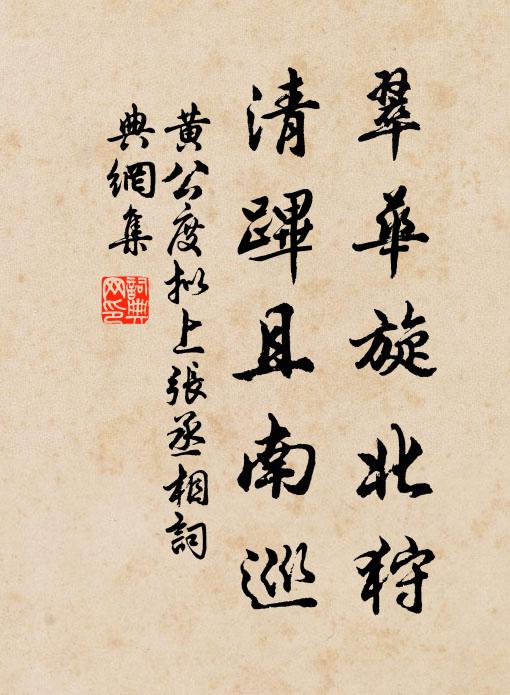 翠華旋北狩
清蹕且南巡
黃公度擬上張丞相詞
典網集
詞典
网印